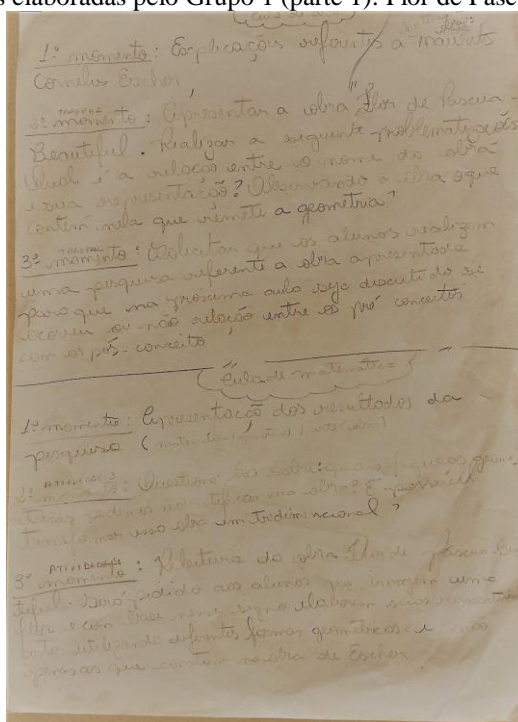 s elaboradas pelo Grupo 1 (parte 1): Flor de Pasc
1º momento: Explicações referentes a Maurits
Cornelius Escher
2º momento: Apresentar a obra "Flor de Pascua -
Beautiful. Realizar a seguinte problematização:
Qual é a relação entre o nome da obra
e sua representação? Observando a obra o que
contém nela que remete a geometria?
3º momento: Solicitar que os alunos realizem
uma pesquisa referente a obra apresentada
para que na próxima aula seja discutido se
ocorreu ou não relação entre os pré conceitos
com os pós-conceito
Aula de matemática
1º momento: Apresentação dos resultados da
pesquisa
2º momento: Questionar sobre: quais figuras geomé-
tricas podemos identificar na obra? É possível
transformar essa obra em tridimensional?
ATIVIDADE
3º momento: Releitura da obra Flor de Pascua Beu-
tiful. Será pedido aos alunos que imaginem uma
flor e com base nesse signo elaborem suas
utilizando diferentes formas geométricas e não
apenas as que contém na obra de Escher.